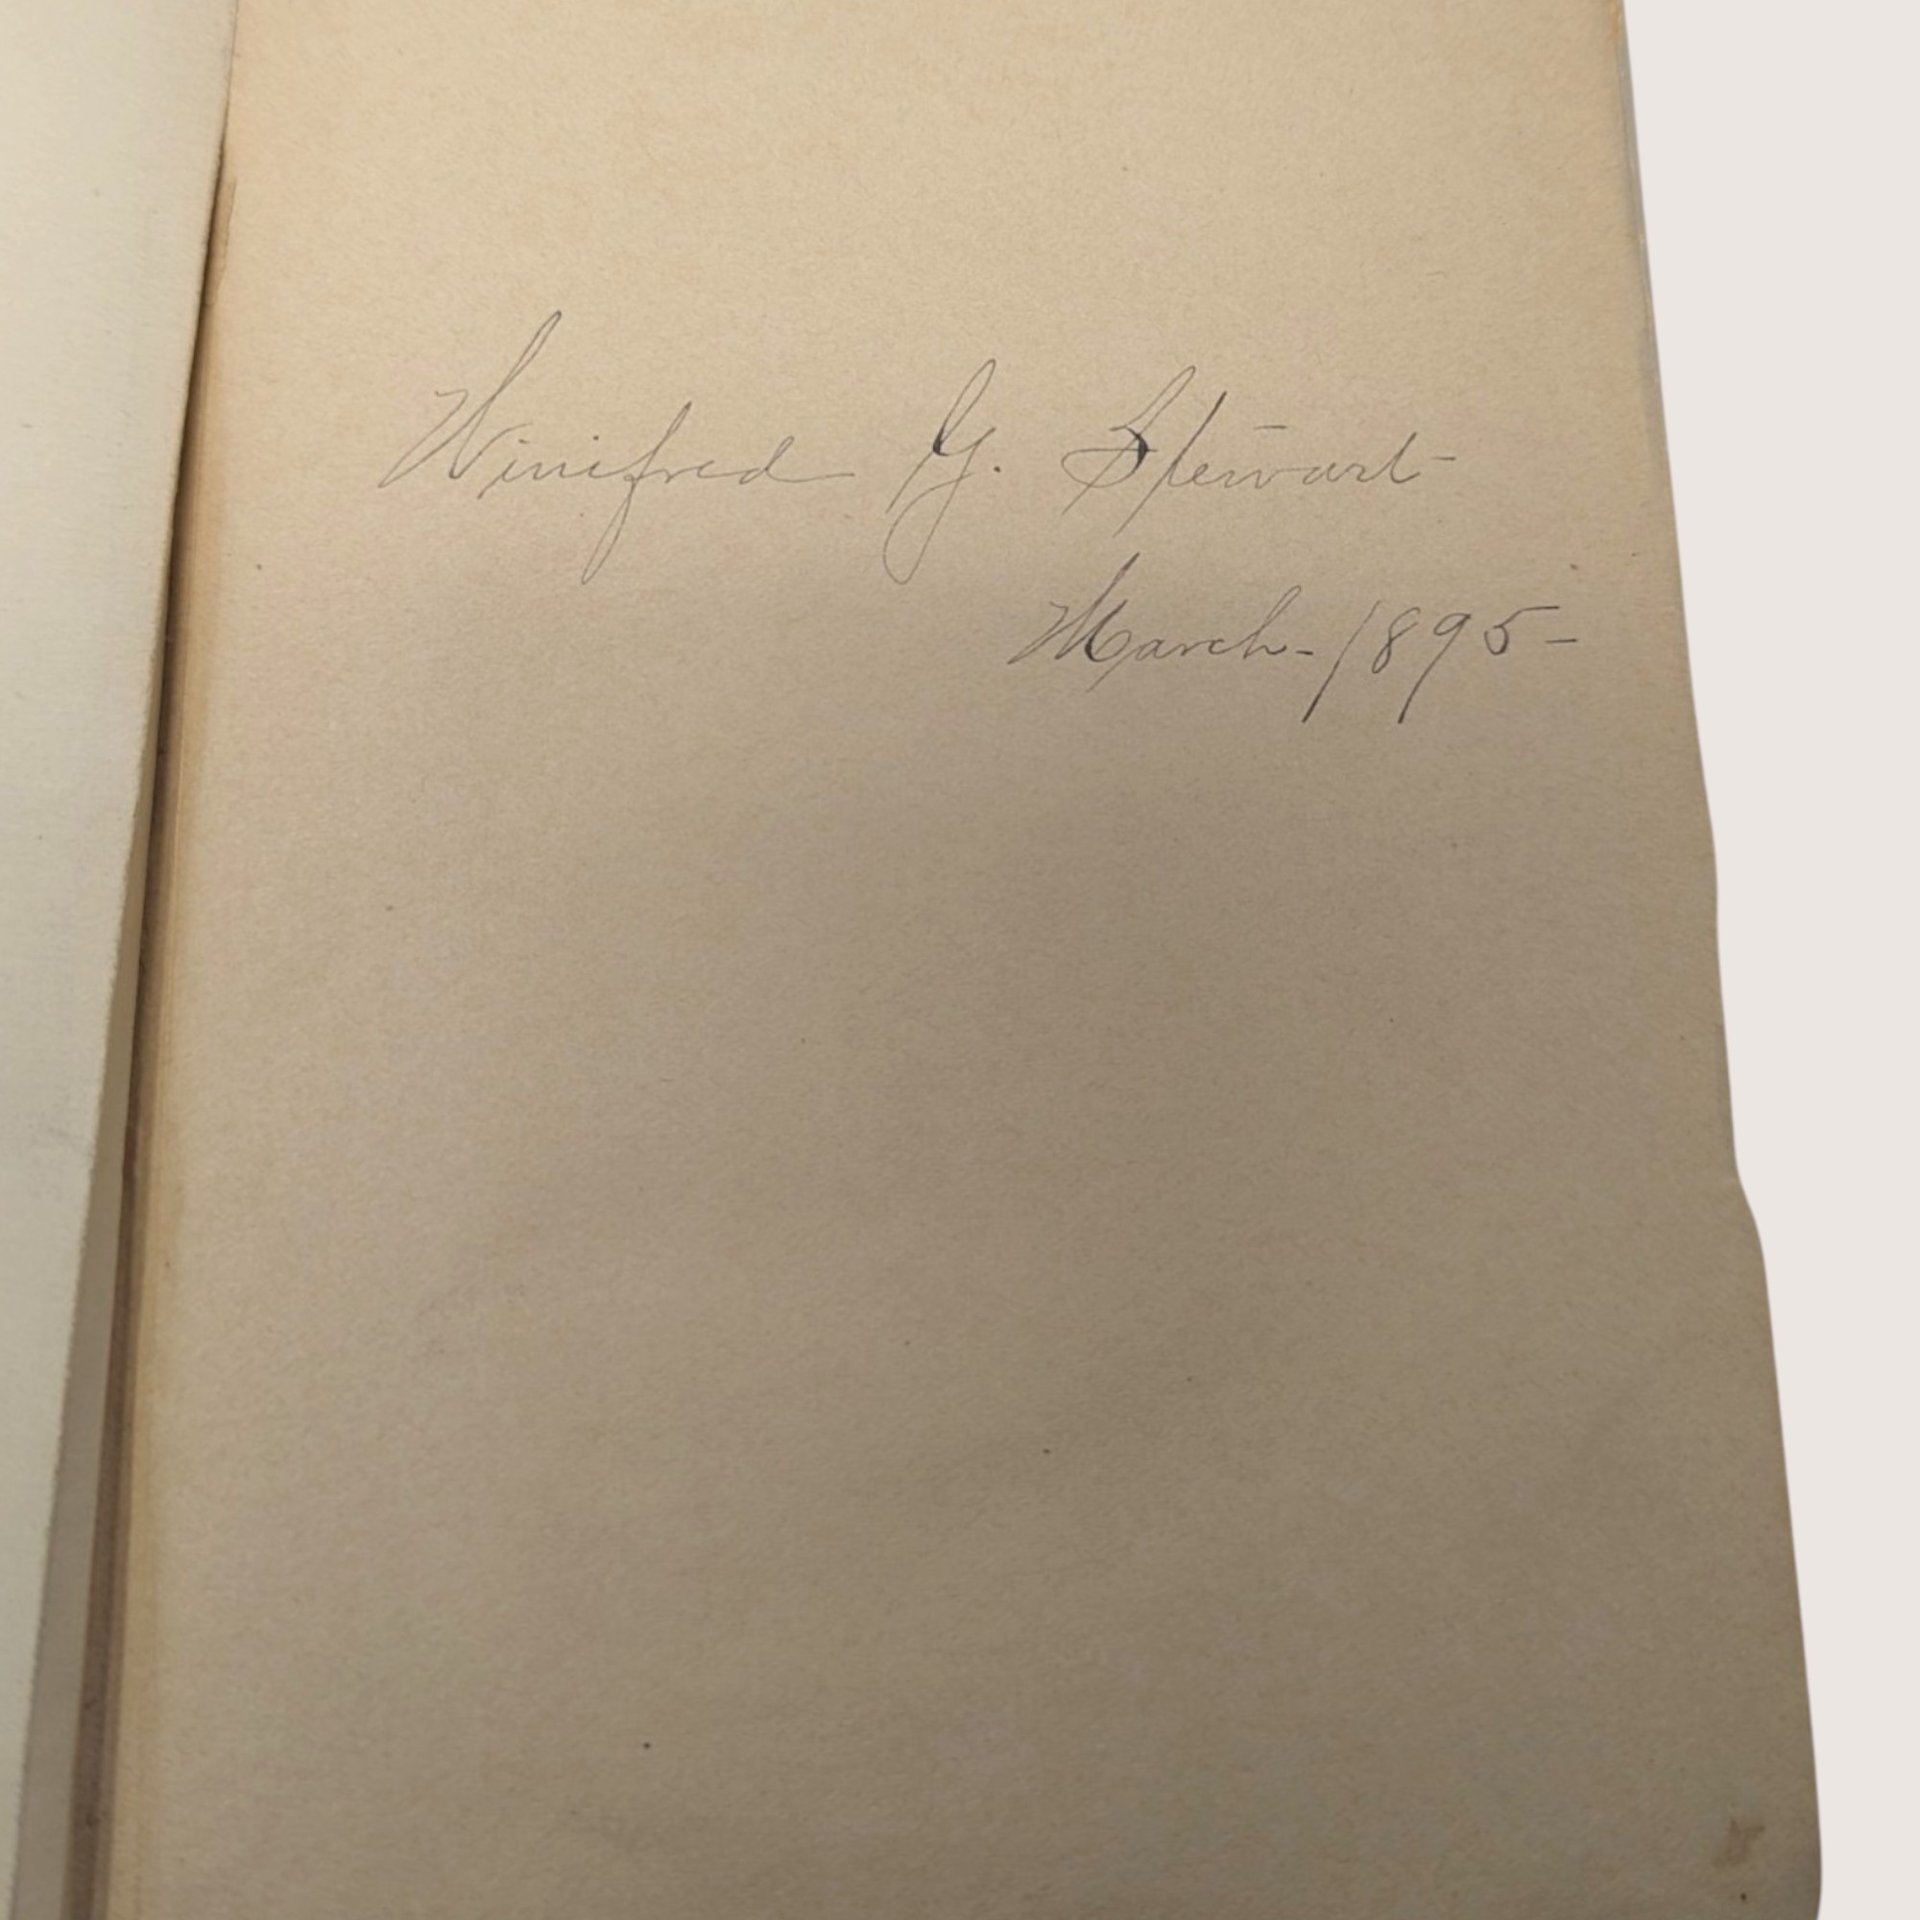 Winifred G. Stewart
March - 1895 -